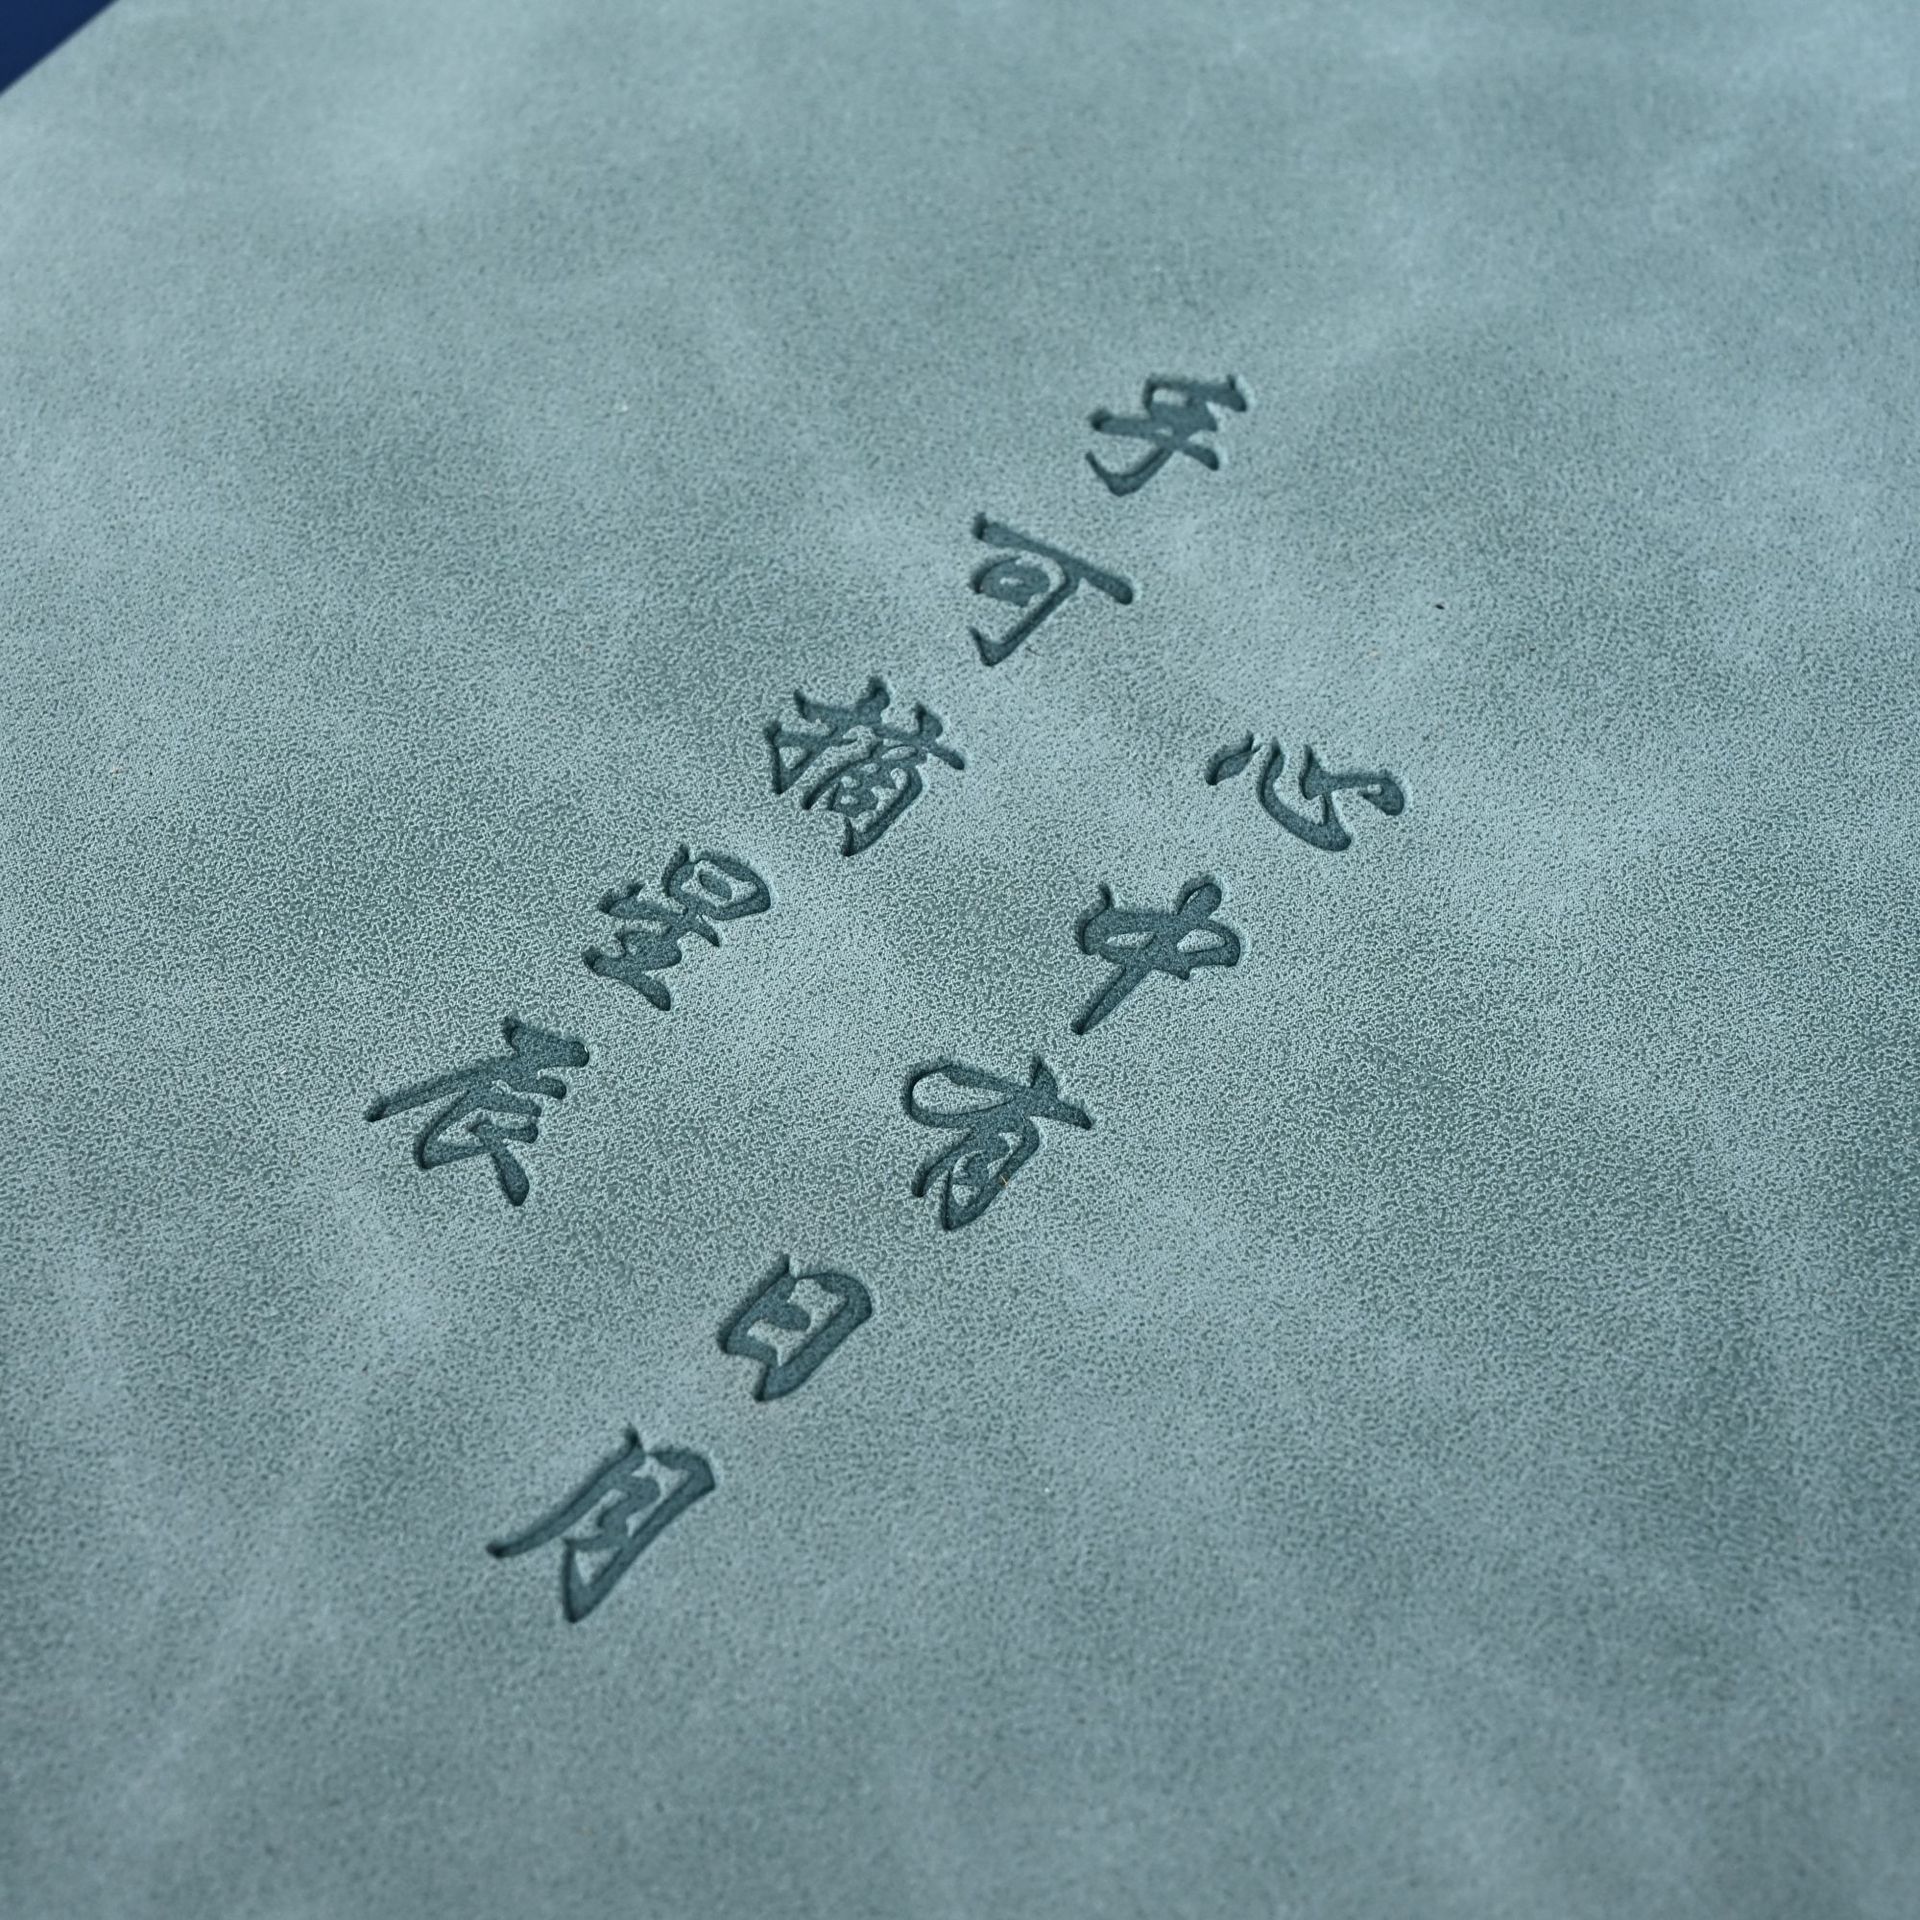 手可摘星辰
心中有日月